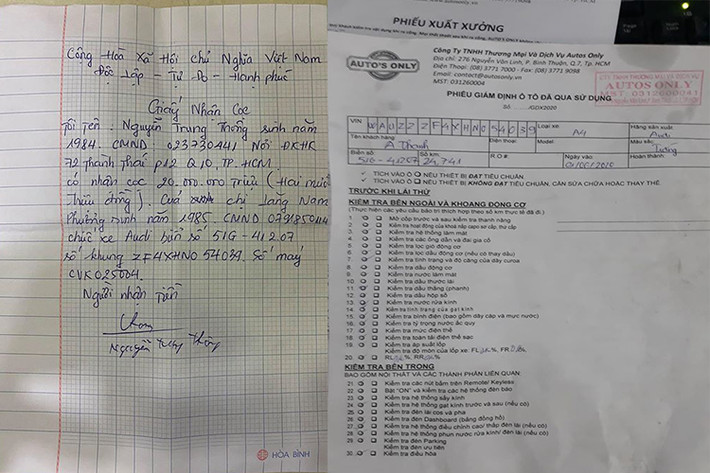 Cộng Hòa Xã Hội Chủ Nghĩa Việt Nam
Độc Lập - Tự Do - Hạnh phúc
Giấy Nhận Cọc
Tôi tên: Nguyễn Trung Thông sinh năm
1984. CMND: 023730441 Nơi ĐKHK
72 Thành Thái P12 Q10. TP. HCM
có nhận cọc 20.000.000 triệu (Hai mươi
triệu đồng). Của chị Tăng Nam
Phương sinh năm 1985. CMND
chiếc xe Audi biển số 51G-41207
số khung ZF4XHN054039. Số máy
CVK025004.
Người nhận tiền
Nguyễn Trung Thông
HÒA BÌNH
PHIẾU XUẤT XƯỞNG
AUTO'S ONLY
Công Ty TNHH Thương Mại Và Dịch Vụ Autos Only
Địa chỉ: 276 Nguyễn Văn Linh, P. Bình Thuận, Q.7, Tp. HCM
Điện Thoại: (08) 3771 7000 - Fax: (08) 3771 9098
Email: contact@autosonly.vn
MST: 031260004
AUTOS ONLY
PHIẾU GIÁM ĐỊNH Ô TÔ ĐÃ QUA SỬ DỤNG
Số /GDX2020
VIN WAUZZZF4XHN054039 Loại xe: A4 Hãng sản xuất: Audi
Tên khách hàng: A Thanh Điện thoại: Model: Màu sắc: Trắng
Biển số: 51G-41207 Số km: 24.741 R.O #: Ngày vào: Hoàn thành
TÍCH VÀO O NẾU THIẾT BỊ ĐẠT TIÊU CHUẨN
TÍCH VÀO □ NẾU THIẾT BỊ KHÔNG ĐẠT TIÊU CHUẨN, CẦN SỬA CHỮA HOẶC THAY THẾ.
TRƯỚC KHI LÁI THỬ
KIỂM TRA BÊN NGOÀI VÀ KHOANG ĐỘNG CƠ
(Thực hiện các yêu cầu bảo trì thích hợp theo số km thực tế đã đi.)
1 Mở cốp trước và sau kiểm tra thanh nâng
2 Kiểm tra hoạt động của khoá nắp capo sơ cấp, thứ cấp
3 Kiểm tra hệ thống làm mát
4 Kiểm tra các ống dẫn và đai gia cố
5 Kiểm tra lọc gió động cơ
6 Kiểm tra lọc dầu động cơ (nếu có thay dầu)
7 Kiểm tra tình trạng và độ căng của dây curoa
8 Kiểm tra dầu động cơ
9 Kiểm tra nước làm mát
10 Kiểm tra dầu thước lái
11 Kiểm tra dầu thắng (phanh)
12 Kiểm tra dầu hộp số
13 Kiểm tra nước rửa kính
14 Kiểm tra tình trạng của gạt kính
15 Kiểm tra bình điện (bao gồm dây cáp và mực nước)
16 Kiểm tra tỷ trọng nước ắc quy
17 Kiểm tra mức điện thế
18 Kiểm tra toàn tải điện thế sạc
19 Kiểm tra áp suất lốp
Kiểm tra độ mòn của lốp xe: FL % FR %
20. RL %, RR %
KIỂM TRA BÊN TRONG
BAO GỒM NỘI THẤT VÀ CÁC THÀNH PHẦN LIÊN QUAN:
21 Kiểm tra các nút bấm trên Remote/ Keyless
22 Bật "ON" và kiểm tra các hệ thống đèn báo
23 Kiểm tra hệ thống sấy kính
24 Kiểm tra hệ thống gạt kính trước và sau (nếu có)
25 Kiểm tra đèn lái cos và pha
26 Kiểm tra đèn Dashboard (bảng đồng hồ)
27 Kiểm tra hệ thống điều chỉnh cao/ thấp đèn lái (nếu có)
28 Kiểm tra hệ thống phun nước rửa kính/ đèn lái (nếu có)
29 Kiểm tra đèn Parking
Kiểm tra đèn ưu tiên
30 Kiểm tra điều hòa